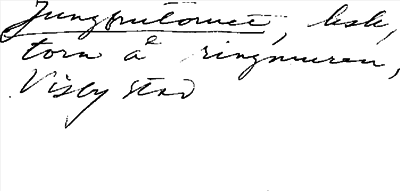 Jungfrutornet, hsk,
torn å ringmuren,
Visby stad